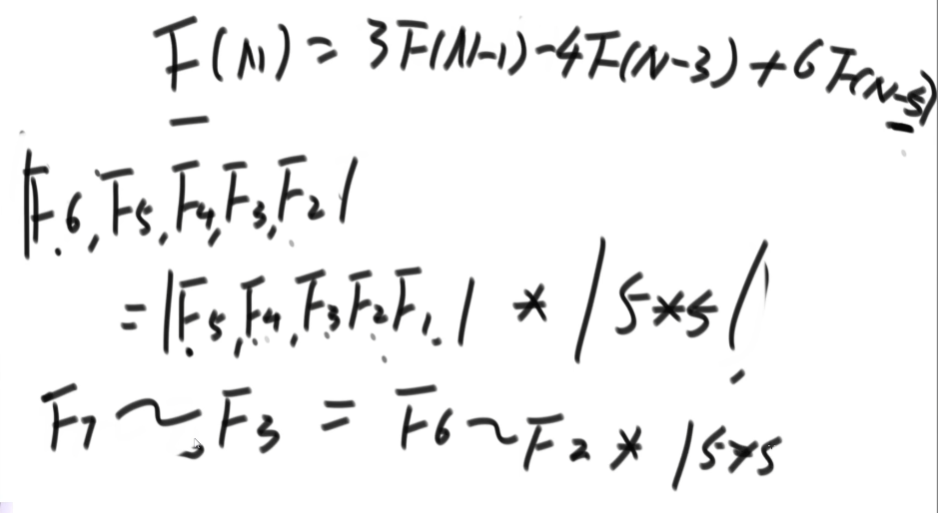 F(N) = 3F(N-1)-4F(N-3)+6F(N-5)
|F6,F5,F4,F3,F2|
=|F5,F4,F3F2F1| * |5*5|
F7~F3 = F6~F2 * |5*5